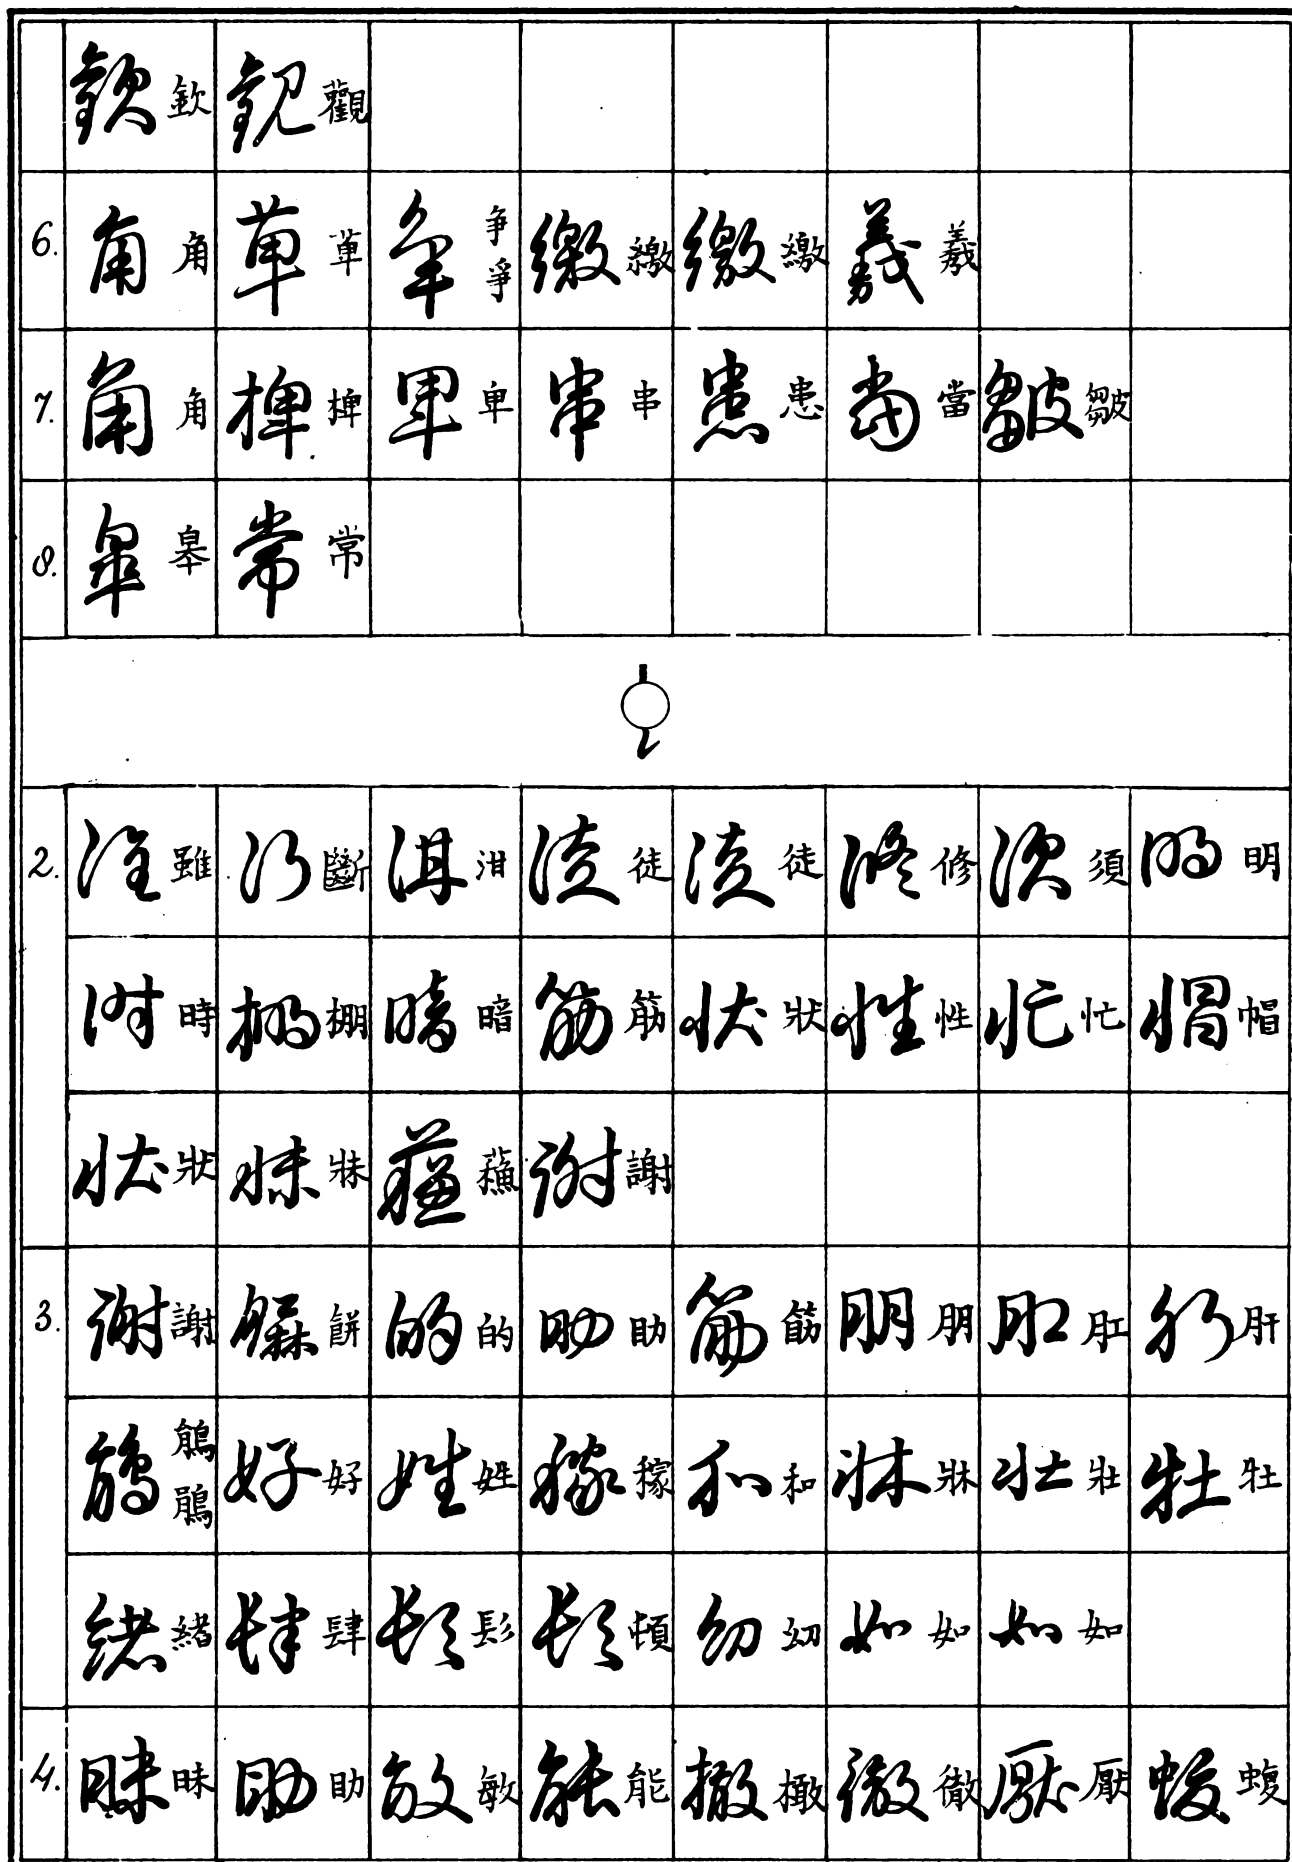 欽 觀
6. 角 葷 争 爭 繳 繳 羲
7. 角 椑 串 患 當 皺
8. 皋 常
2. 雖 斷 泔 徒 徒 修 須 明
時 棚 暗 筋 狀 性 忙 帽
狀 蘓 謝
3. 謝 餅 的 助 筋 朋 肛 肝
鵃 鵑 好 姓 稼 和 牀 壯 牡
緒 肆 髟 頓 幼 如 如
4. 昧 助 敏 能 橄 徹 厭 蝮